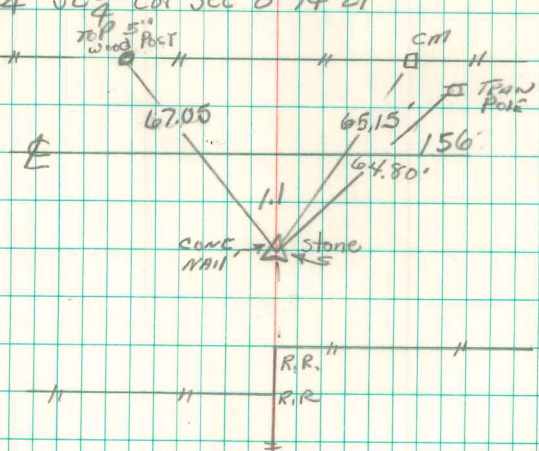 SE 1/4 Cor Sec 8 14 21
TOP 5"
wood Post
CM
TRAN
POLE
67.05
65.15'
156
64.80'
℄
1.1
CONC.
NAIL
stone
R.R.
R.R